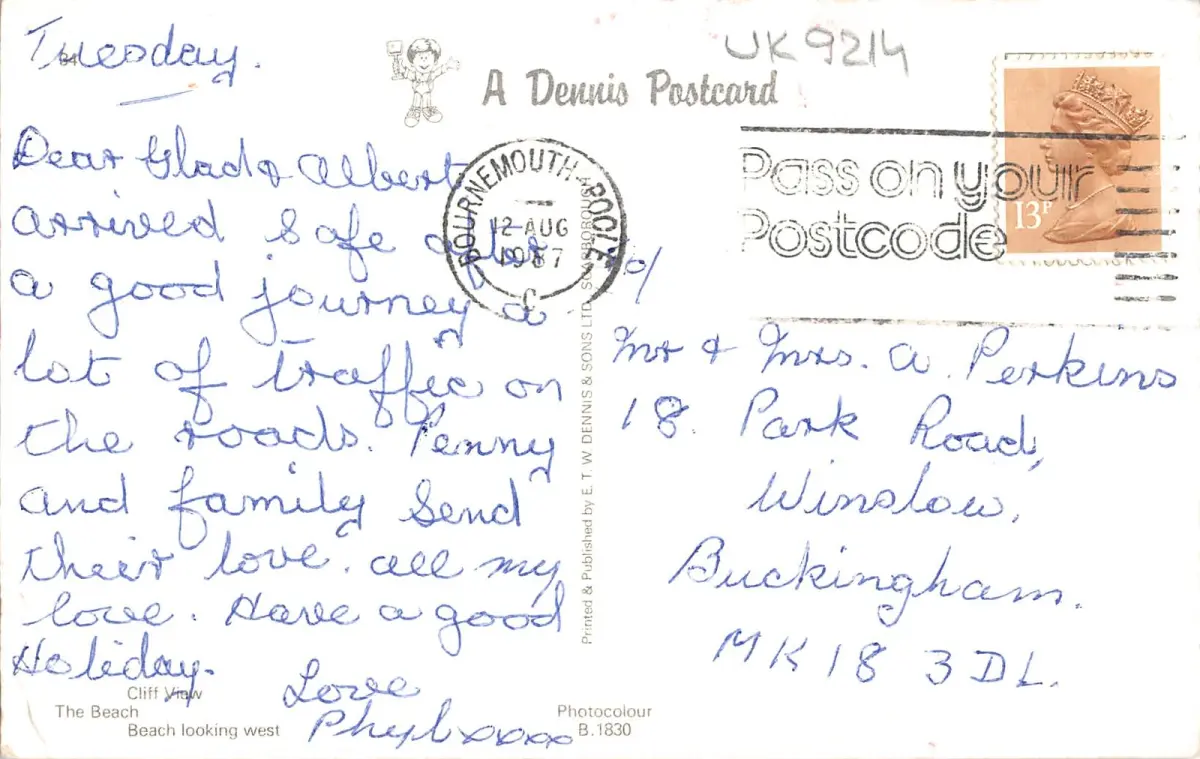 Tuesday.
Dear Glad & Albert
arrived safe after
a good journey a
lot of traffic on
the roads. Penny
and family send
their love. all my
love. Have a good
Holiday.
Love
Phyl xxxx
Cliff View
The Beach
Beach looking west
A Dennis Postcard
UK 9214
BOURNEMOUTH-POOLE
12 AUG
1987
C
Pass on your
Postcode
13P
Printed & Published by E. T. W. DENNIS & SONS LTD. SCARBOROUGH
c/o
Mr & Mrs. A. Perkins
18. Park Road,
Winslow,
Buckingham.
MK18 3DL.
Photocolour
B.1830